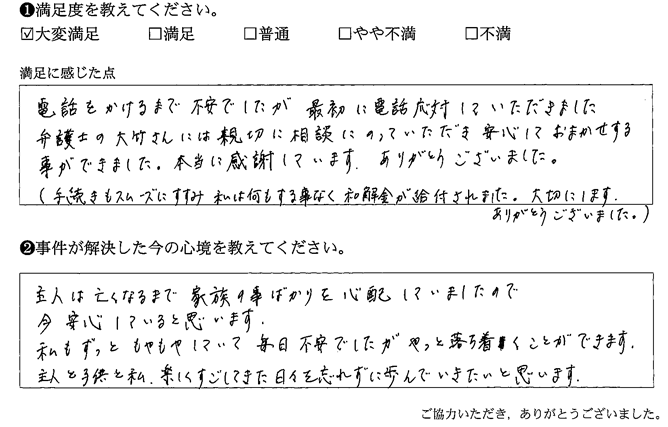 ❶満足度を教えてください。
☑大変満足 □満足 □普通 □やや不満 □不満
満足に感じた点
電話をかけるまで 不安でしたが 最初に電話応対していただきました
弁護士の大竹さんには親切に相談にのっていただき 安心しておまかせする
事ができました。本当に感謝しています. ありがとうございました。
(手続きもスムーズにすすみ 私は何もする事なく 和解金が給付されました。大切にします.
ありがとうございました。)
❷事件が解決した今の心境を教えてください。
主人は亡くなるまで 家族の事ばかりを心配していましたので
今 安心していると思います.
私もずっと もやもやしていて 毎日 不安でしたが やっと落ち着くことができます.
主人と子供と私. 楽しくすごしてきた日々を忘れずに歩んでいきたいと思います.
ご協力いただき，ありがとうございました。